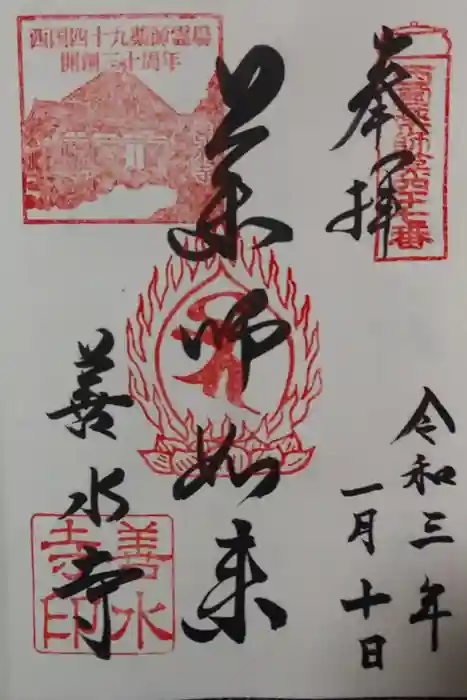 奉拝
西國薬師第四十七番
令和三年
一月十日
薬師如来
善水寺
西国四十九薬師霊場
開創三十周年
善水
寺印